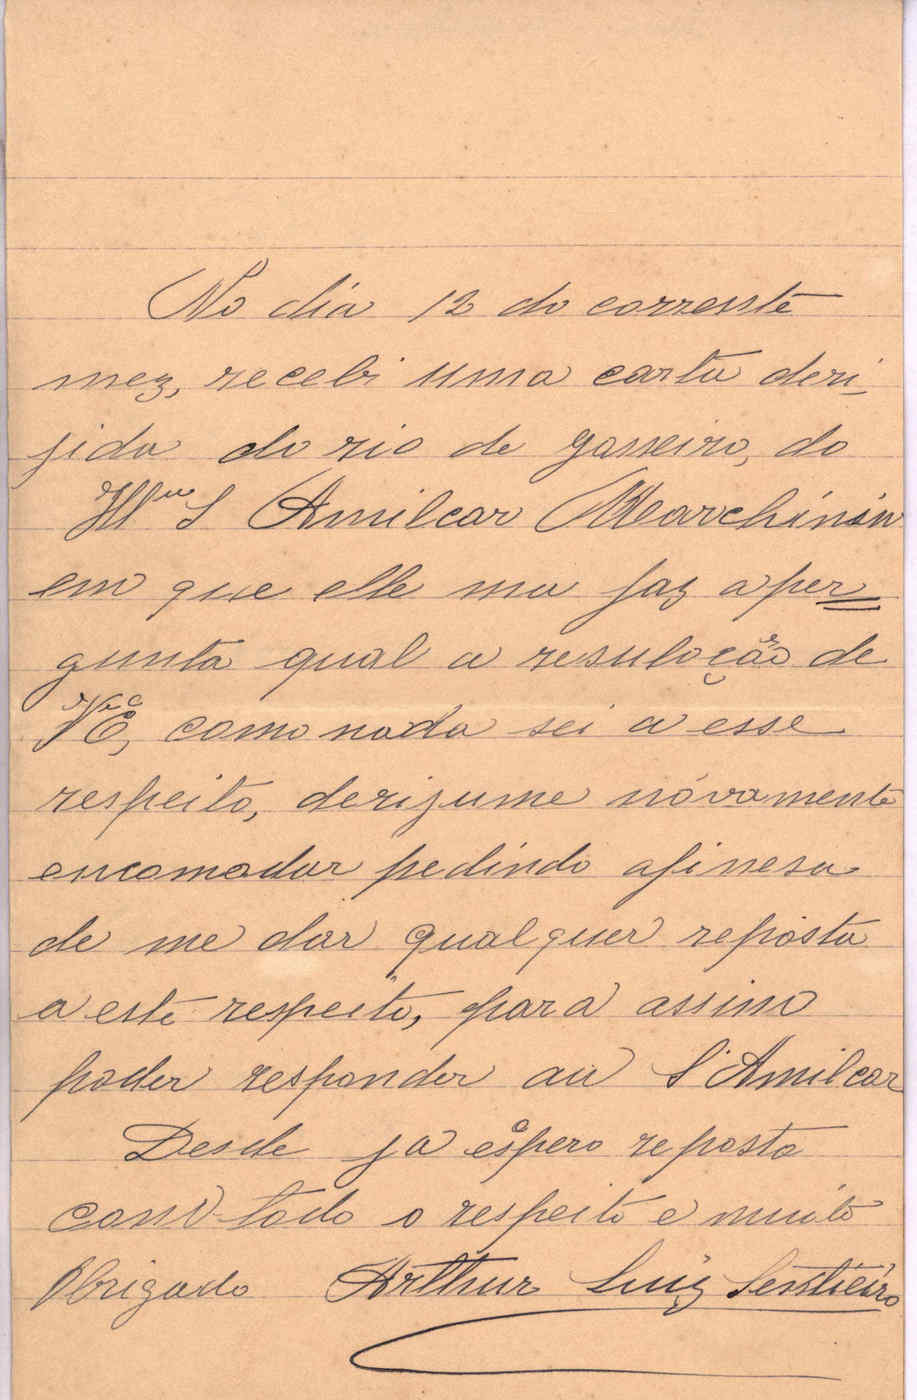 No dia 12 do corrente
mez, recebi uma carta deri-
jida do rio de Janneiro, do
Illmo S Amilcar Marchinin
em que elle ma faz a per=
gunta qual a resulução de
VEª, como nada sei a esse
respeito, derijume nóvamente
encomodar pedindo afinesa
de me dar qualquer reposta
a este respeito, para assim
poder responder au S Amilcar
Desde ja espero reposta
com todo o respeito e muito
Obrigado Arthur Luiz